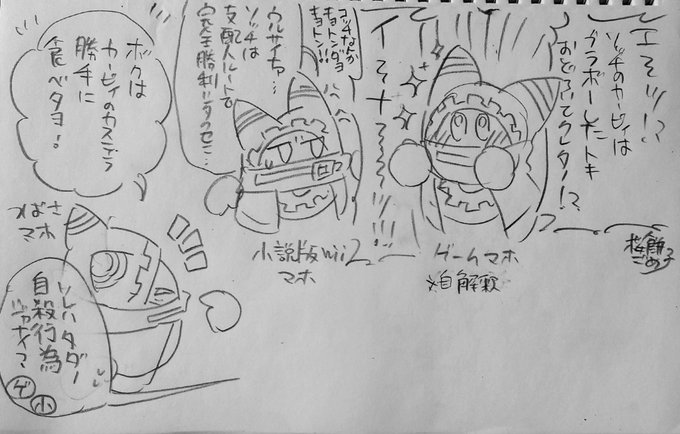 エそッ!?
ソッチのカービィは
ブラボーしたトキ
おどろいてクレタノ!?
イーそーナ〜〜
コッチなんか
キョトンダヨ
キョトン!!
ウルサイナァ…
ソッチは
支配人ルートで
完全勝利シタクセニ…
ボクは
カービィのカステラ
勝手に
食ベタヨ!
ゲームマホ
※自解釈
小説版Wii2
マホ
つばさ
マホ
ソレハタダー
自殺行為
ジャナイ?
ゲ
小